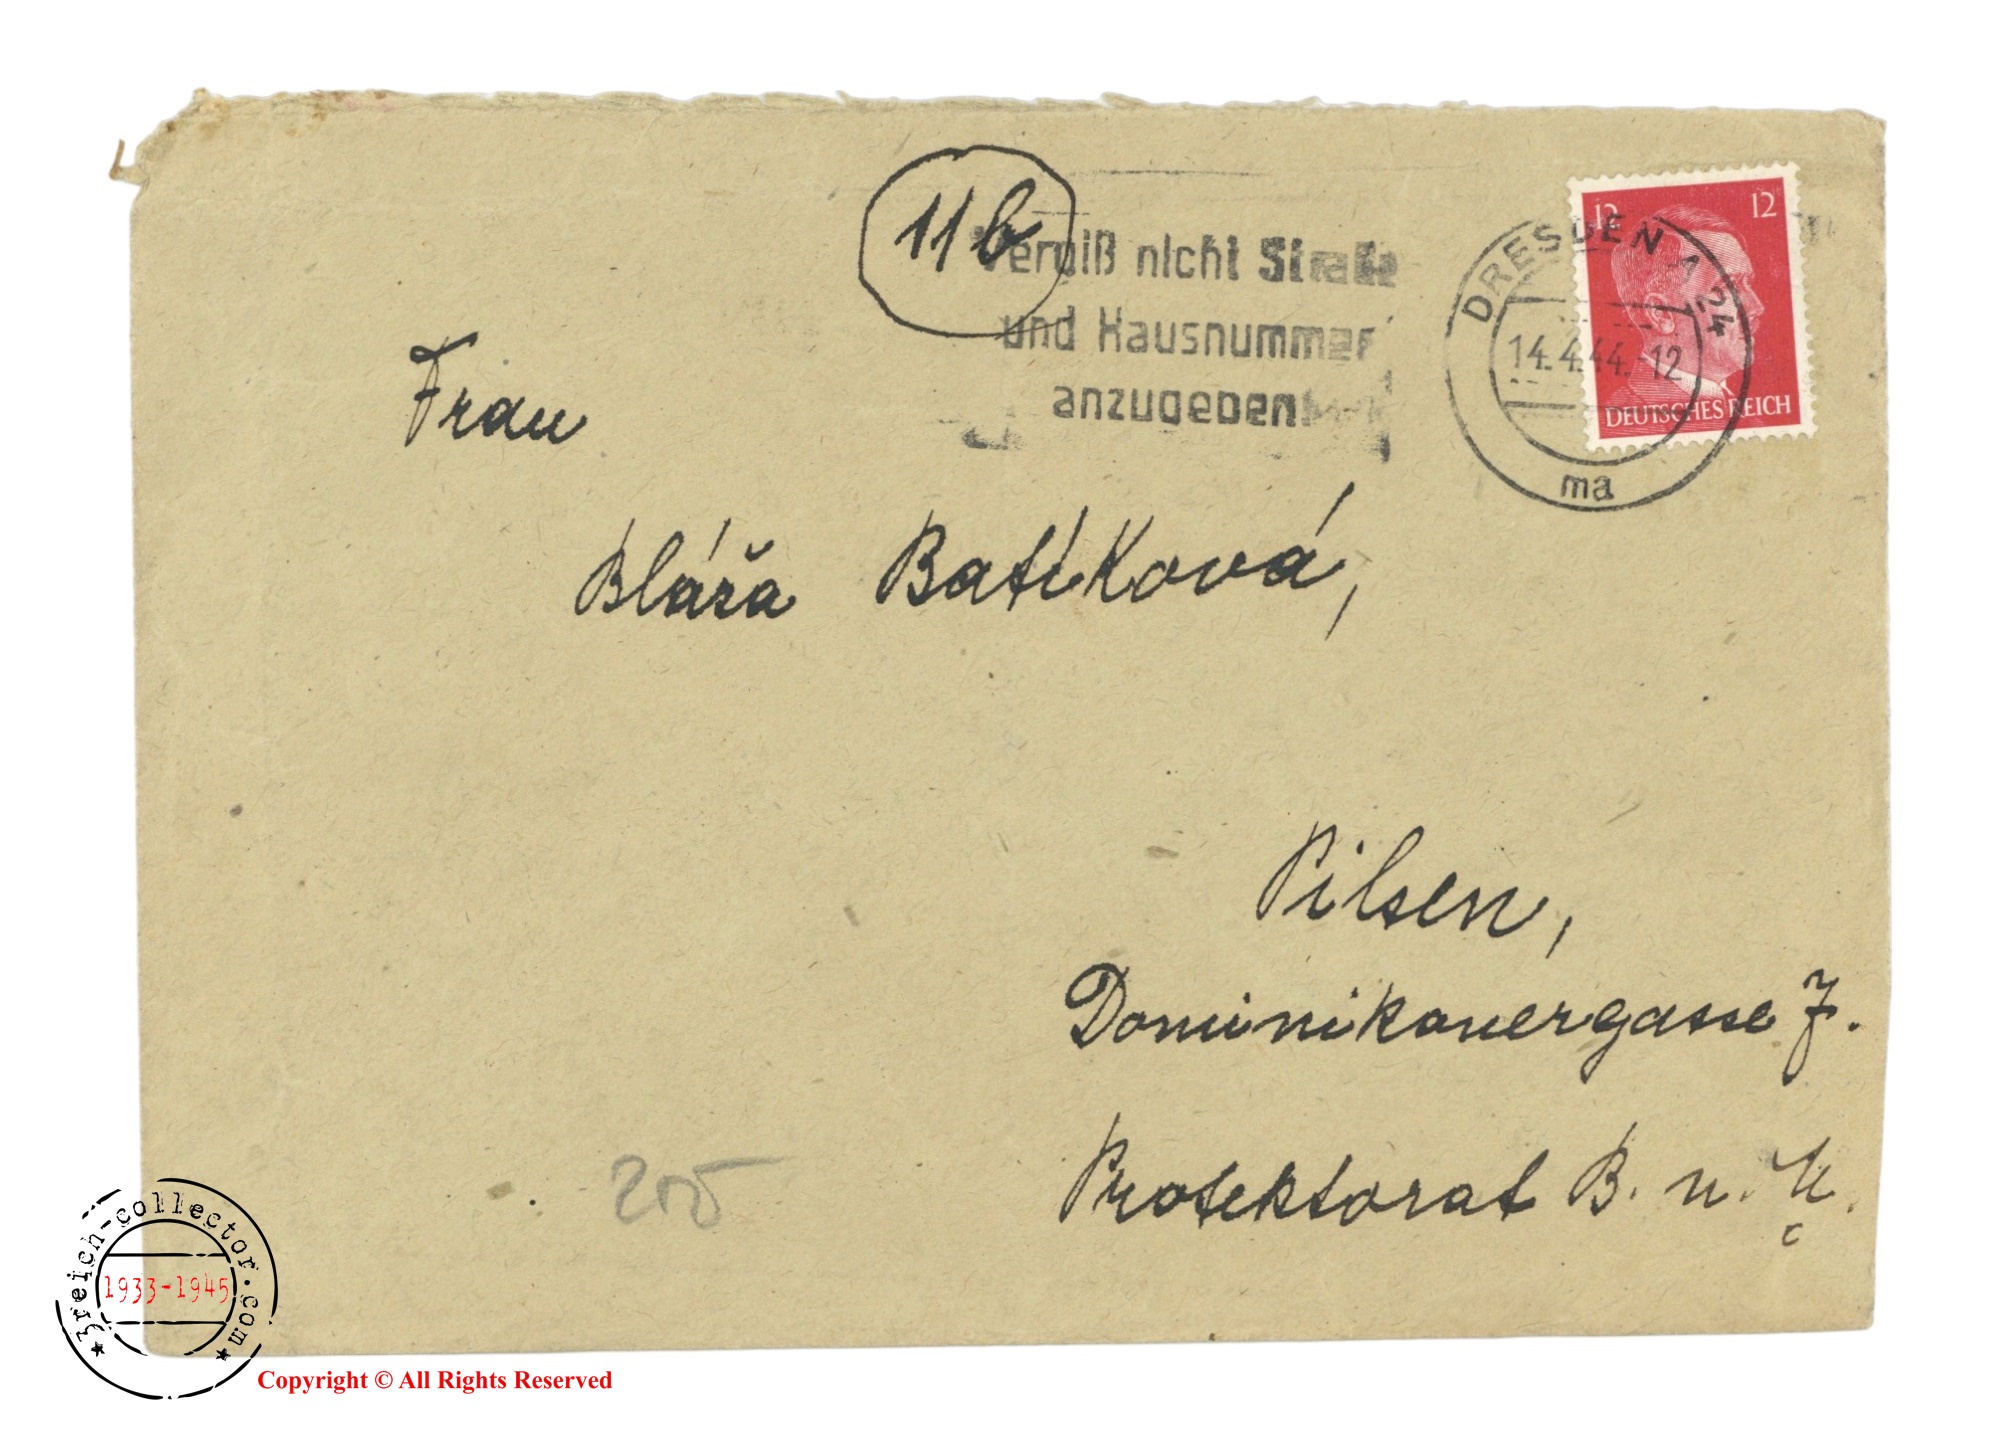 11b
Vergiß nicht Straße
und Hausnummer
anzugeben!
12 12
DEUTSCHES REICH
DRESDEN A 24
14.4.44.-12
ma
Frau
Bláža Batíková,
Pilsen,
Dominikanergasse 7.
Protektorat B. u. M.
205
3reich-collector.com
1933-1945
Copyright © All Rights Reserved